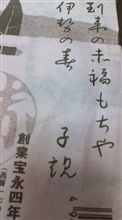 到来の赤福もちや
伊勢の春
子規
創業宝永四年